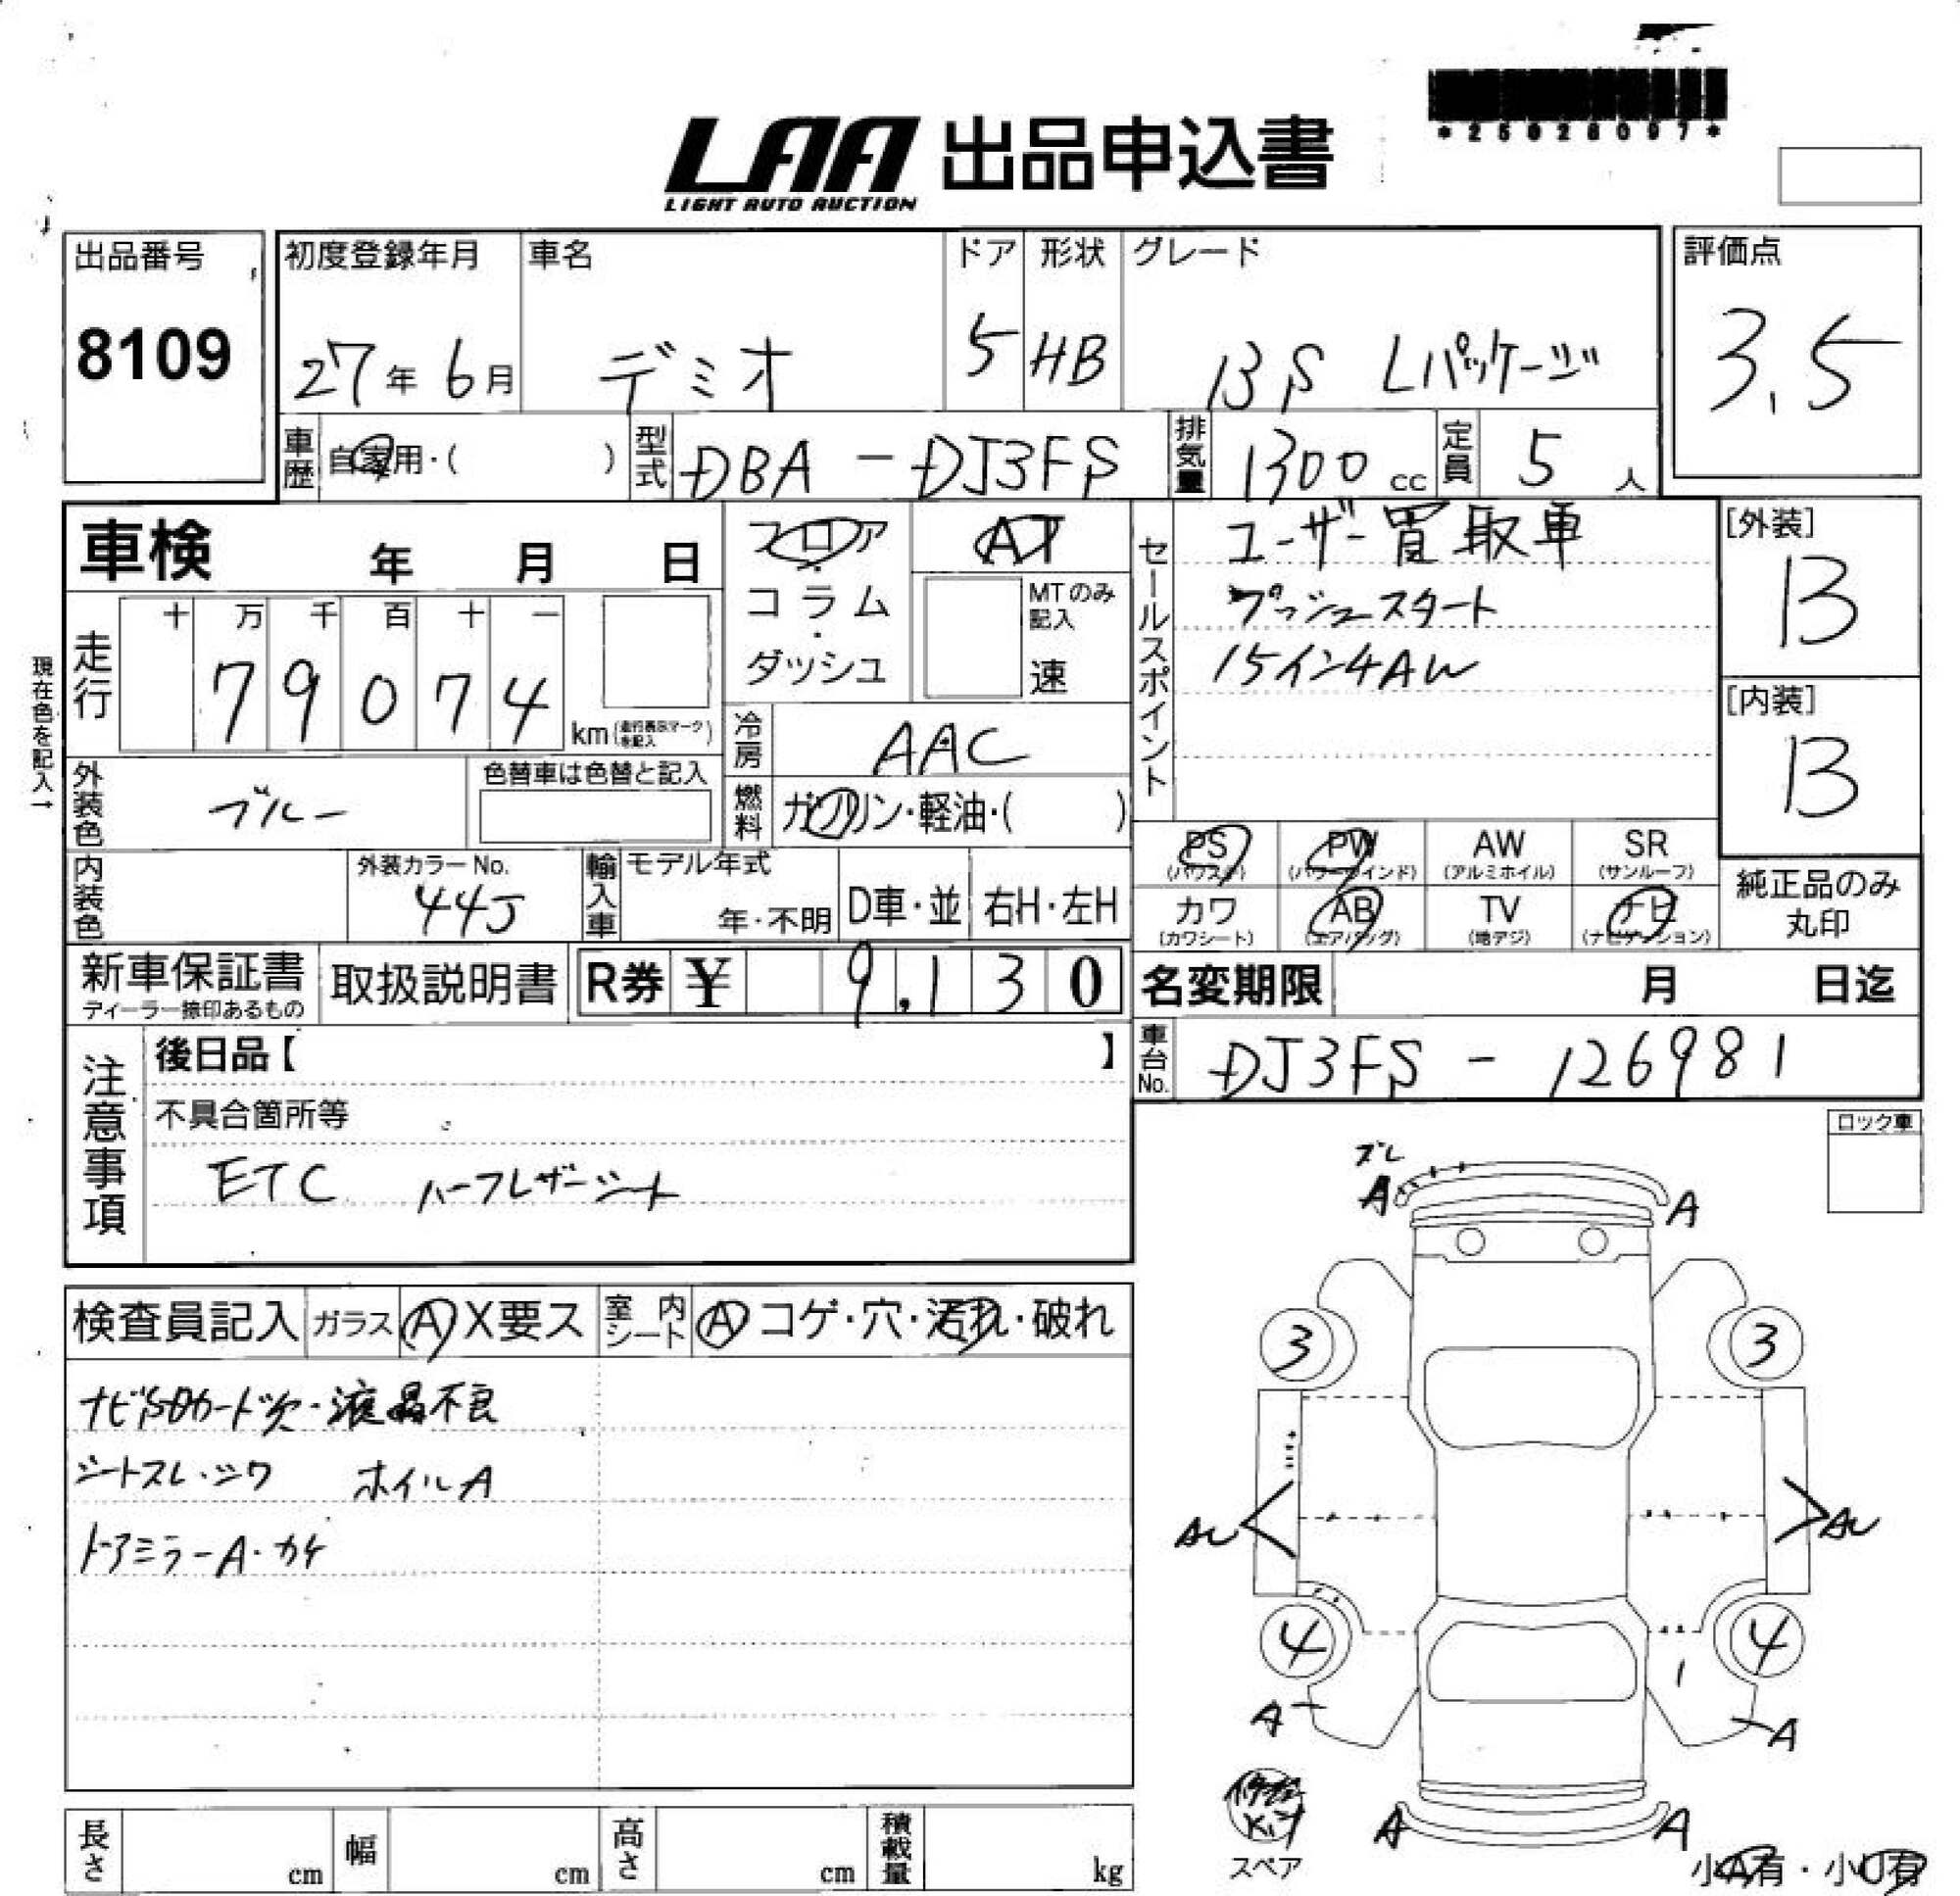 *25026097*
LAA 出品申込書
LIGHT AUTO AUCTION
出品番号
8109
初度登録年月
27年 6月
車名
デミオ
ドア
5
形状
HB
グレード
13S Lパッケージ
評価点
3.5
車歴 自家用・( )
型式 DBA - DJ3FS
排気量 1300 cc
定員 5 人
車検 年 月 日
フロア
コラム
・
ダッシュ
AT
MTのみ記入
速
セールスポイント
ユーザー買取車
プッシュスタート
15インチAW
[外装]
B
[内装]
B
現在色を記入→
走行
十 万 千 百 十 一
7 9 0 7 4
km (走行表示マークを記入)
冷房 AAC
燃料 ガソリン・軽油・( )
外装色 ブルー
色替車は色替と記入
内装色
外装カラーNo.
44J
輸入車
モデル年式
年・不明
D車・並
右H・左H
PS (パワステ)
PW (パワーウインド)
AW (アルミホイル)
SR (サンルーフ)
カワ (カワシート)
AB (エアバッグ)
TV (地デジ)
ナビ (ナビゲーション)
純正品のみ
丸印
新車保証書
ディーラー捺印あるもの
取扱説明書
R券 ¥ 9,130
名変期限 月 日迄
車台No. DJ3FS - 126981
注意事項
後日品【 】
不具合箇所等
ETC ハーフレザーシート
ロック車
検査員記入
ガラス A X要ス
室内シート A コゲ・穴・汚れ・破れ
ナビSDカード欠・液晶不良
シートスレ・シワ ホイルA
ドアミラーA・カケ
ズレ
A A
3 3
AU AU
4 4
A A
修理Kit
スペア
A A
小A有・小U有
長さ cm
幅 cm
高さ cm
積載量 kg